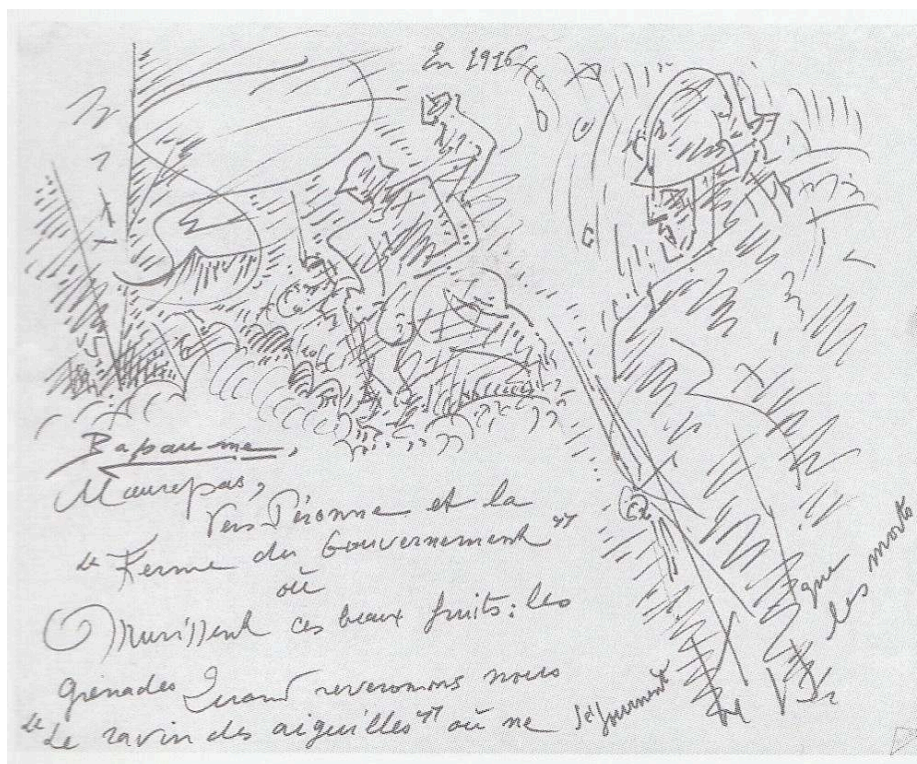 En 1916
Bapaume,
Maurepas,
Vers Péronne et la
"Ferme du Gouvernement"
où
Murissent ces beaux fruits: les
grenades Quand reverrons nous
"Le ravin des aiguilles" où ne séjournent
que
les morts